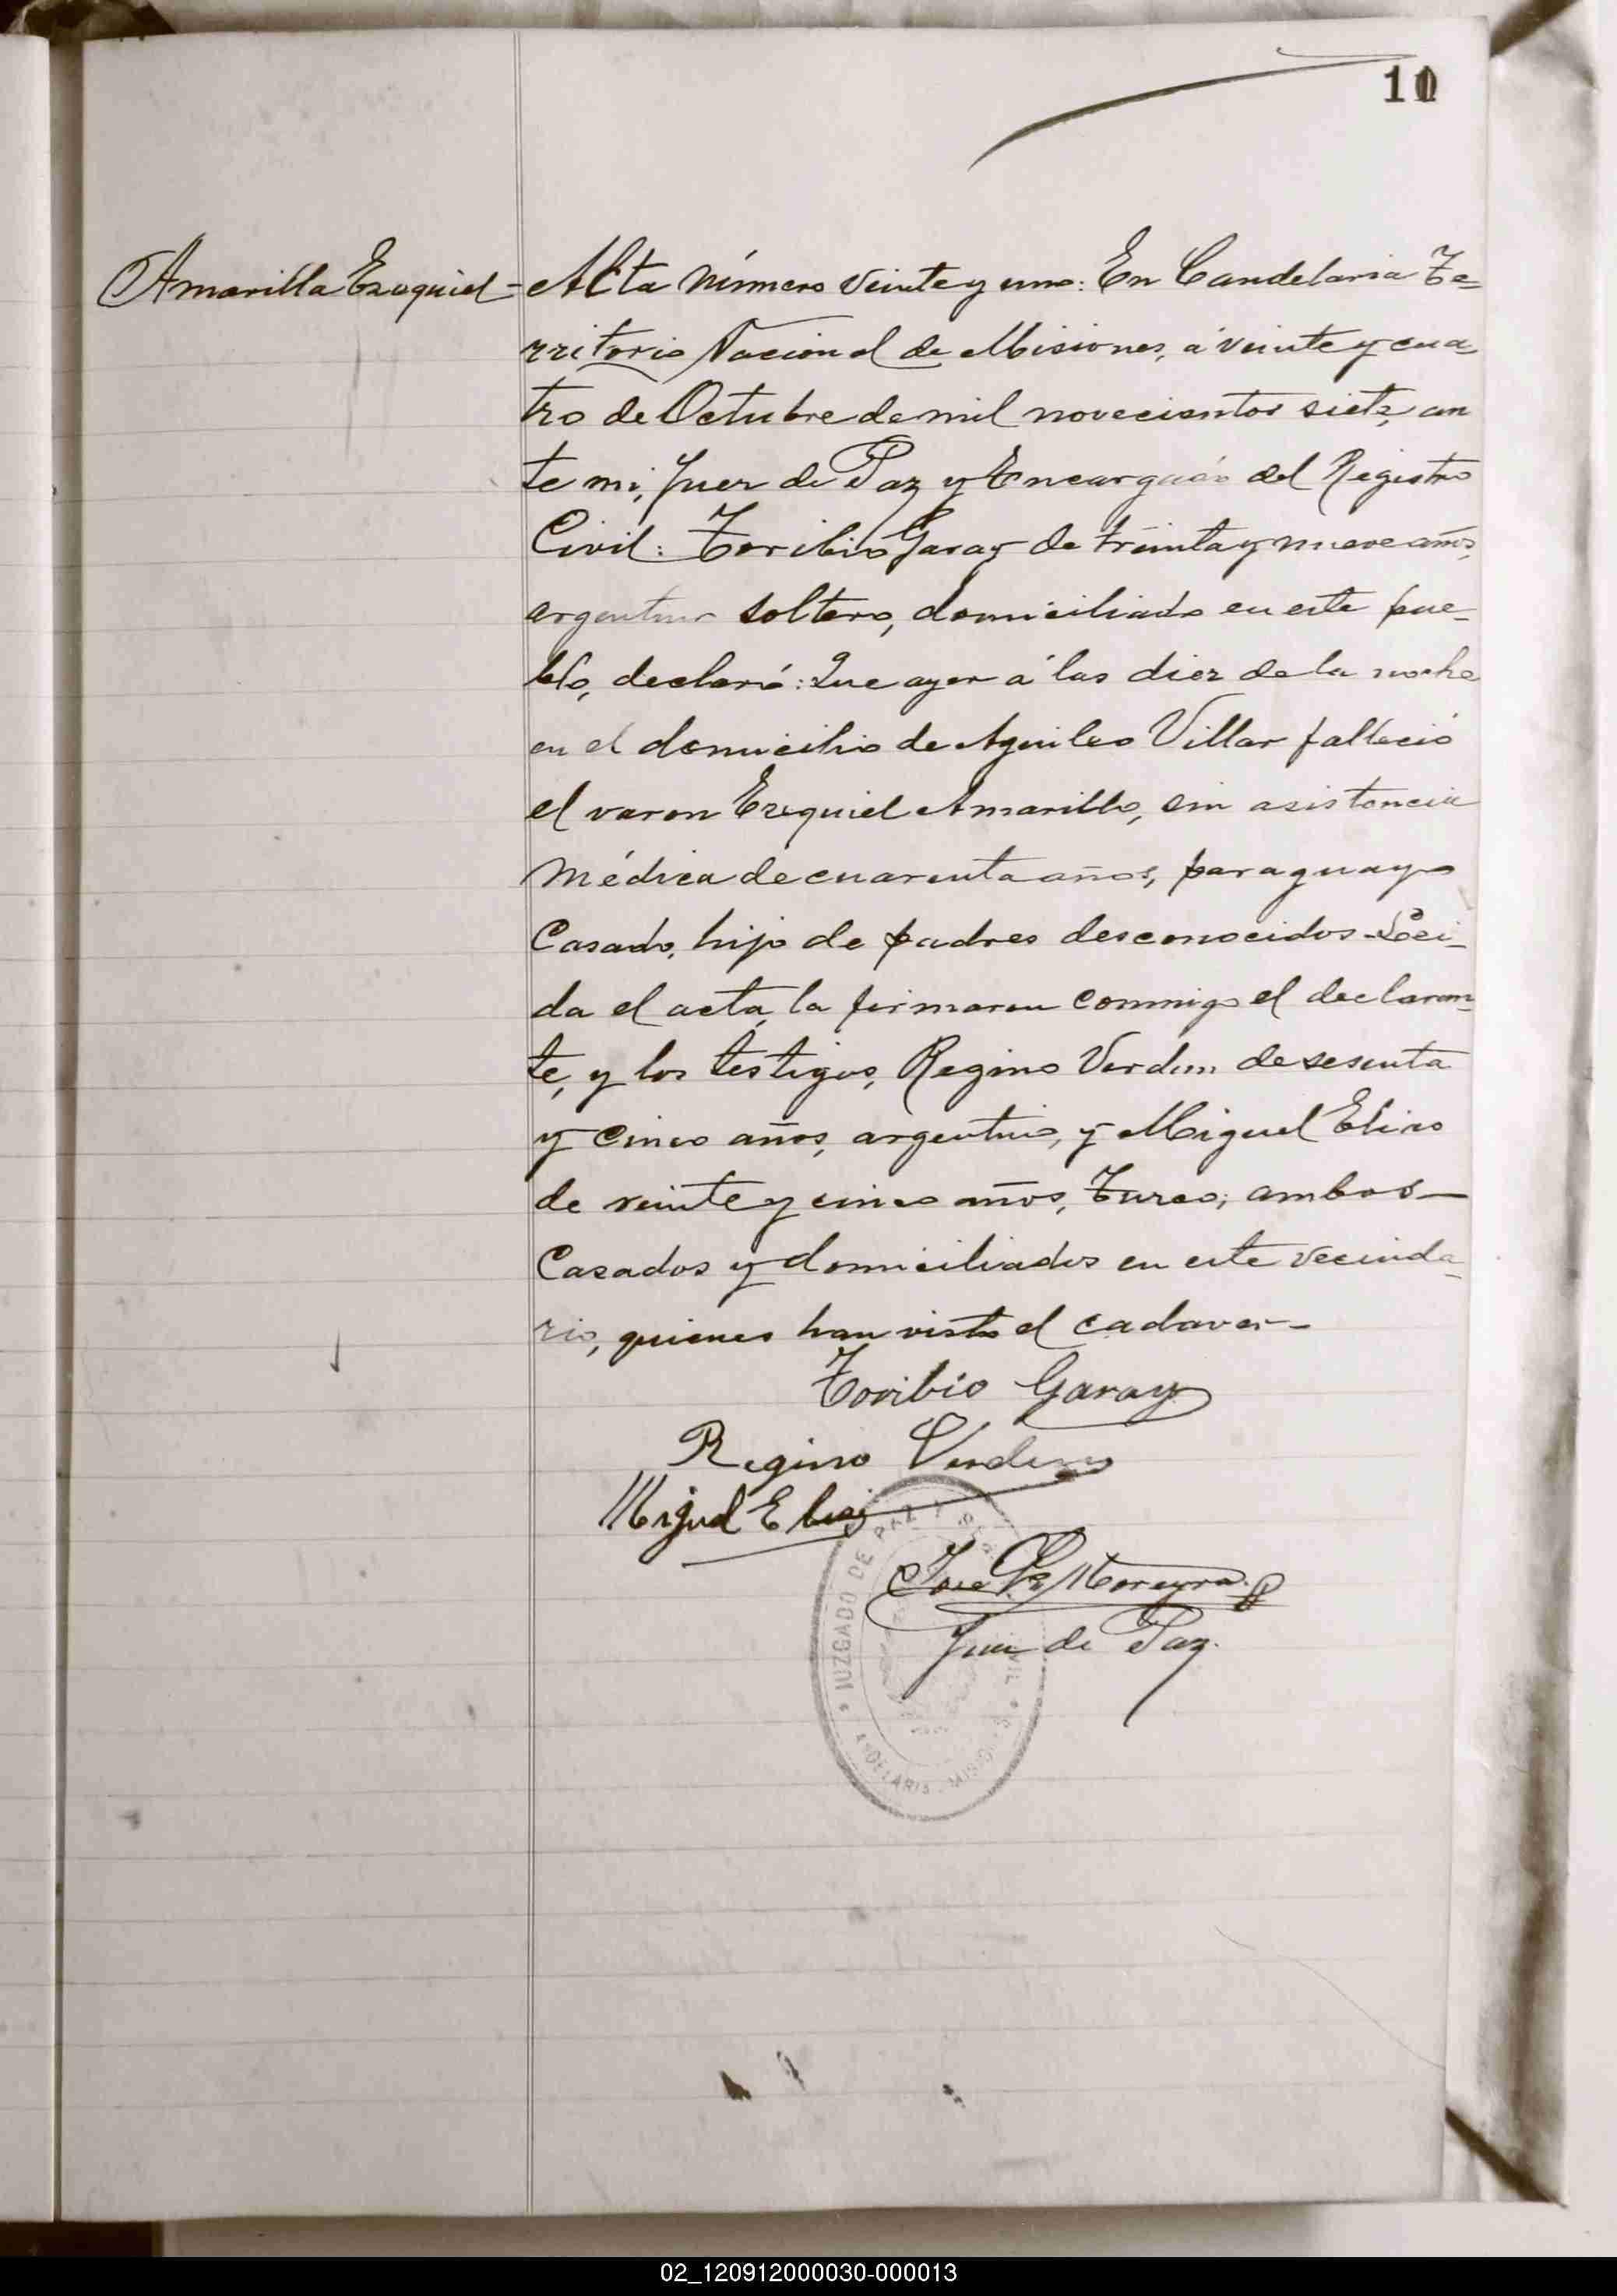 10
Amarilla Ezequiel - Acta número veinte y uno: En Candelaria Te=
rritorio Nacional de Misiones, á veinte y cua-
tro de Octubre de mil novecientos siete, an
te mi, Juez de Paz y Encargado del Registro
Civil: Toribio Garay de treinta y nueve años,
argentino soltero, domiciliado en este pue-
blo, declaró: Que ayer á las diez de la noche
en el domicilio de Aquileo Villar falleció
el varon Ezequiel Amarilla, sin asistencia
médica de cuarenta años, paraguayo
Casado, hijo de padres desconocidos - Lei-
da el acta, la firmaron conmigo el declaran=
te, y los testigos, Regino Verdun de sesenta
y cinco años, argentino, y Miguel Elias
de veinte y cinco años, Turco; ambos -
Casados y domiciliados en este vecinda-
rio, quienes han visto el cadaver -
Toribio Garay
Regino Verdun
Miguel Elias
José Moreyra
Juez de Paz.
JUZGADO DE PAZ Y
CANDELARIA - MISIONES
02_120912000030-000013